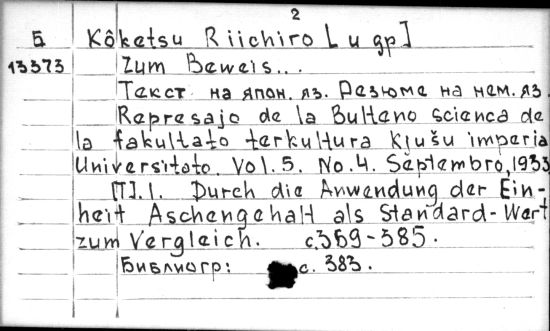 2
Б Kôketsu Riichiro [и др]
13373 Zum Beweis...
Текст на япон. яз. Резюме на нем. яз.
Represajo de la Bulteno scienca de
la fakultato terkultura Kjušu imperia
Universitato. Vol. 5. No. 4. Septembro, 1933
[T]. 1. Durch die Anwendung der Ein-
heit Aschengehalt als Standard-Wert
zum Vergleich. c. 369-385.
Библиогр: c. 383.